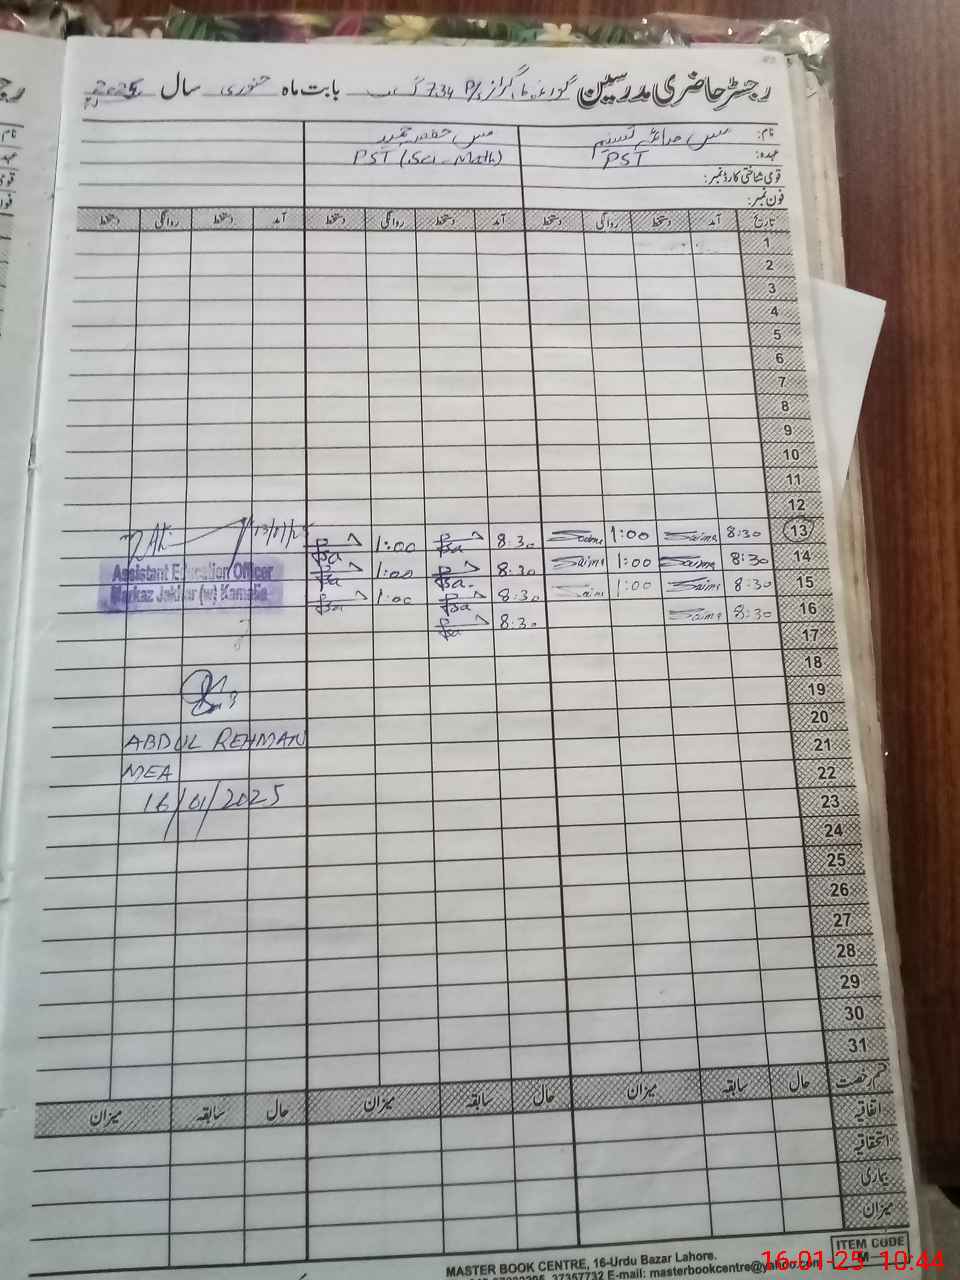 رجسٹر حاضری مدرسین گورنمنٹ گرلز P/S 734 گ ب بابت ماہ جنوری سال 2025
نام: مس صائمہ تسنیم مس
عہدہ: PST PST (Sci - Math)
قومی شناختی کارڈ نمبر:
فون نمبر:
تاریخ آمد دستخط روانگی دستخط آمد دستخط روانگی دستخط آمد دستخط روانگی دستخط
1
2
3
4
5
6
7
8
9
10
11
12
13 8:30 Saima 1:00 Saima 8:30 1:00 13/01/25
14 8:30 Saima 1:00 Saima 8:30 1:00
Assistant Education Officer
15 8:30 Saima 1:00 Saima 8:30 1:00
Markaz Jakhar (w) Kamalia
16 8:30 Saima 8:30
17
18
19
20
ABDUL REHMAN
21
MEA
22
16/01/2025
23
24
25
26
27
28
29
30
31
قسم رخصت حال سابقہ میزان حال سابقہ میزان حال سابقہ میزان
اتفاقیہ
استحقاقیہ
بیماری
میزان
ITEM CODE
MASTER BOOK CENTRE, 16-Urdu Bazar Lahore.
37357732 E-mail: masterbookcentre@yahoo.com
16-01-25 10:44